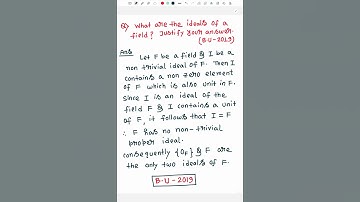 Q) What are the ideals of a
field? Justify your answer.
(B.U-2019)
Ans
Let F be a field & I be a
non trivial ideal of F. Then I
contains a non zero element
of F which is also unit in F.
Since I is an ideal of the
field F & I contains a unit
of F, it follows that I = F
∴ F has no non-trivial
proper ideal.
consequently {0F} & F are
the only two ideals of F.
B-U-2019